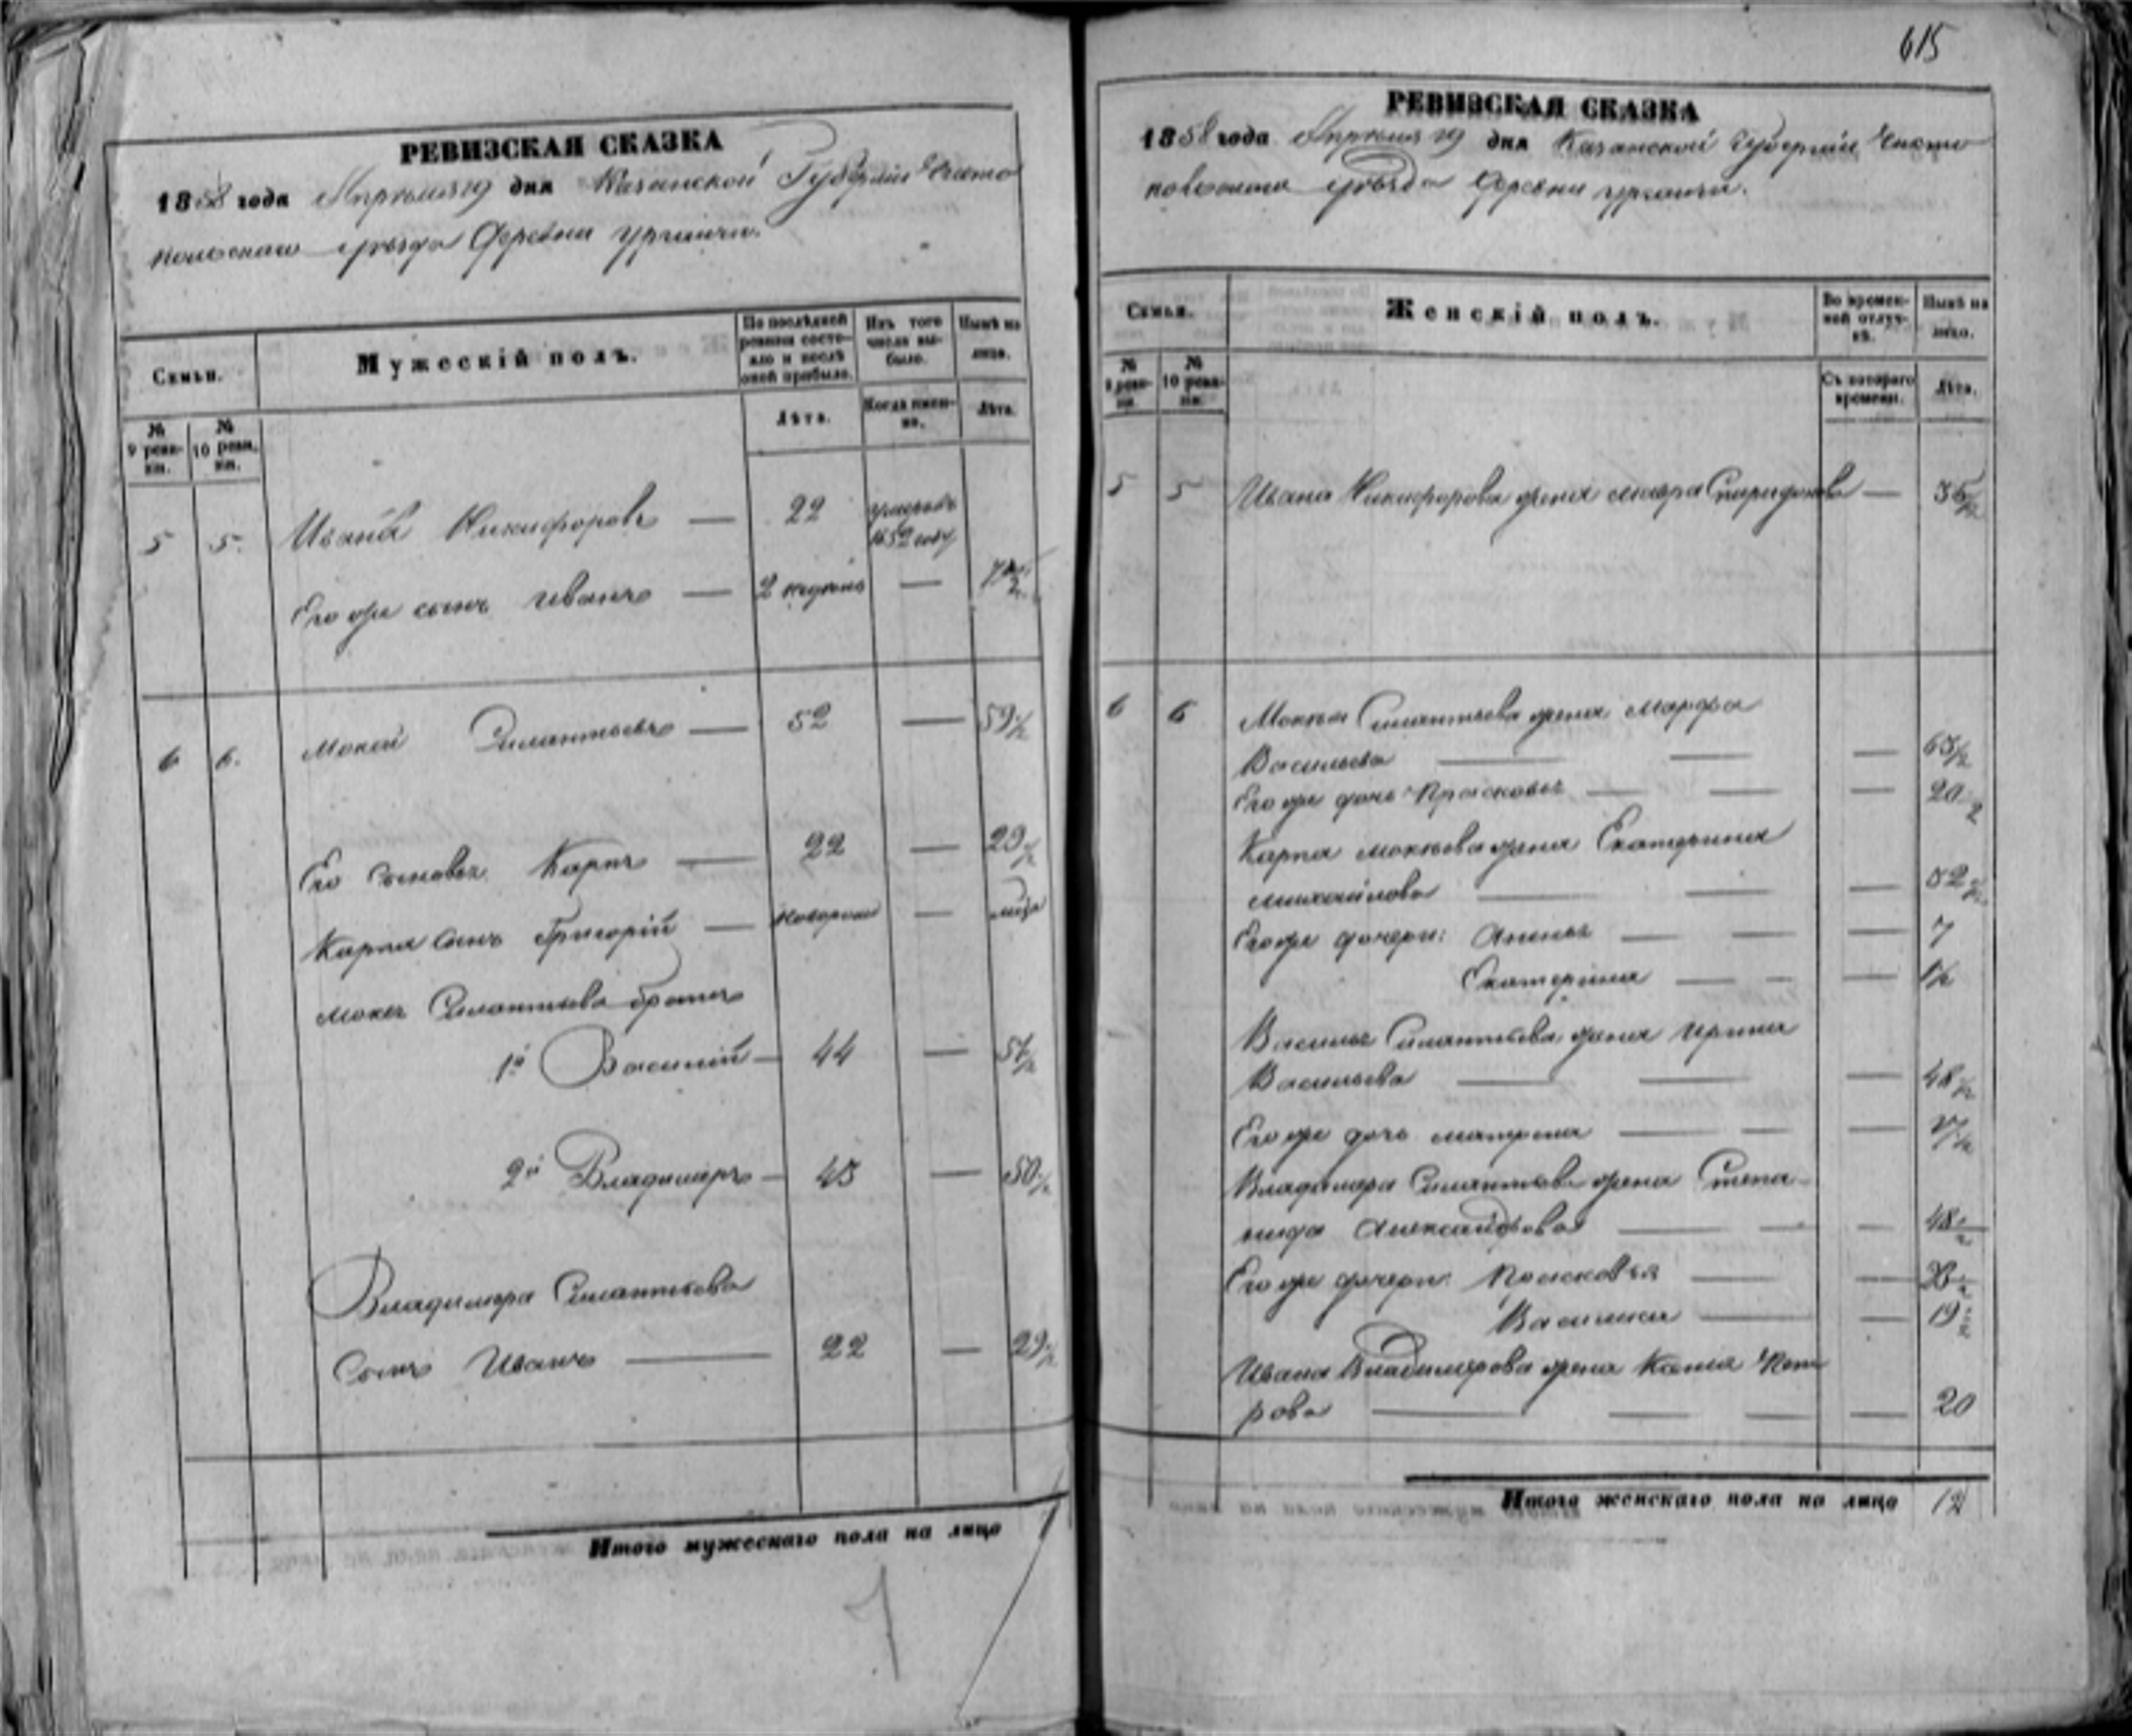 РЕВИЗСКАЯ СКАЗКА
1858 года Апреля 19 дня Казанской Губерніи Чисто
польскаго уѣзда Деревни Ургаичи.
Семьи.
Мужескій полъ.
По послѣдней ревизіи состояло и послѣ оной прибыло.
Изъ того числа выбыло.
Нынѣ на лицо.
№ 9 ревизіи.
№ 10 ревизіи.
Лѣта.
Когда именно.
Лѣта.
5 5. Иванъ Никифоровъ — 22 умеръ въ 1852 году
Его же сынъ Иванъ — 2 недѣль — 7 1/2
6 6. Мокей Силантьевъ — 52 — 59 1/2
Его Сыновья Карпъ — 22 — 29 1/2
Карпа Сынъ Григорій — новорожд —
Мокея Силантьева братья
1й Василій — 44 — 51 1/2
2й Владимиръ — 43 — 50 1/2
Владимира Силантьева
Сынъ Иванъ — 22 — 29 1/2
Итого мужескаго пола на лицо
7
615
РЕВИЗСКАЯ СКАЗКА
1858 года Апреля 19 дня Казанской Губерніи Чисто
польскаго уѣзда Деревни Ургаичи.
Семьи.
Женскій полъ.
Во временной отлучкѣ.
Нынѣ на лицо.
№ 9 ревизіи.
№ 10 ревизіи.
Съ котораго времени.
Лѣта.
5 5 Ивана Никифорова жена Мавра Спиридонова — 36 1/2
6 6 Мокея Силантьева жена Марфа
Васильева — — — 63 1/2
Его же дочь Прасковья — — — 20 1/2
Карпа Мокеева жена Екатерина
Михайлова — — — 32 1/2
Его же дочери: Анинья — — — 7
Екатерина — — — 1 1/2
Василья Силантьева жена Ирина
Васильева — — — 48 1/2
Его же дочь Матрена — — —
Владимира Силантьева жена Степа-
нида Александрова — — — 48 1/2
Его же дочери: Прасковья — —
Василиса — — 19 1/2
Ивана Владимерова жена Ксенія Пет
рова — — — — 20
Итого женскаго пола на лицо 12